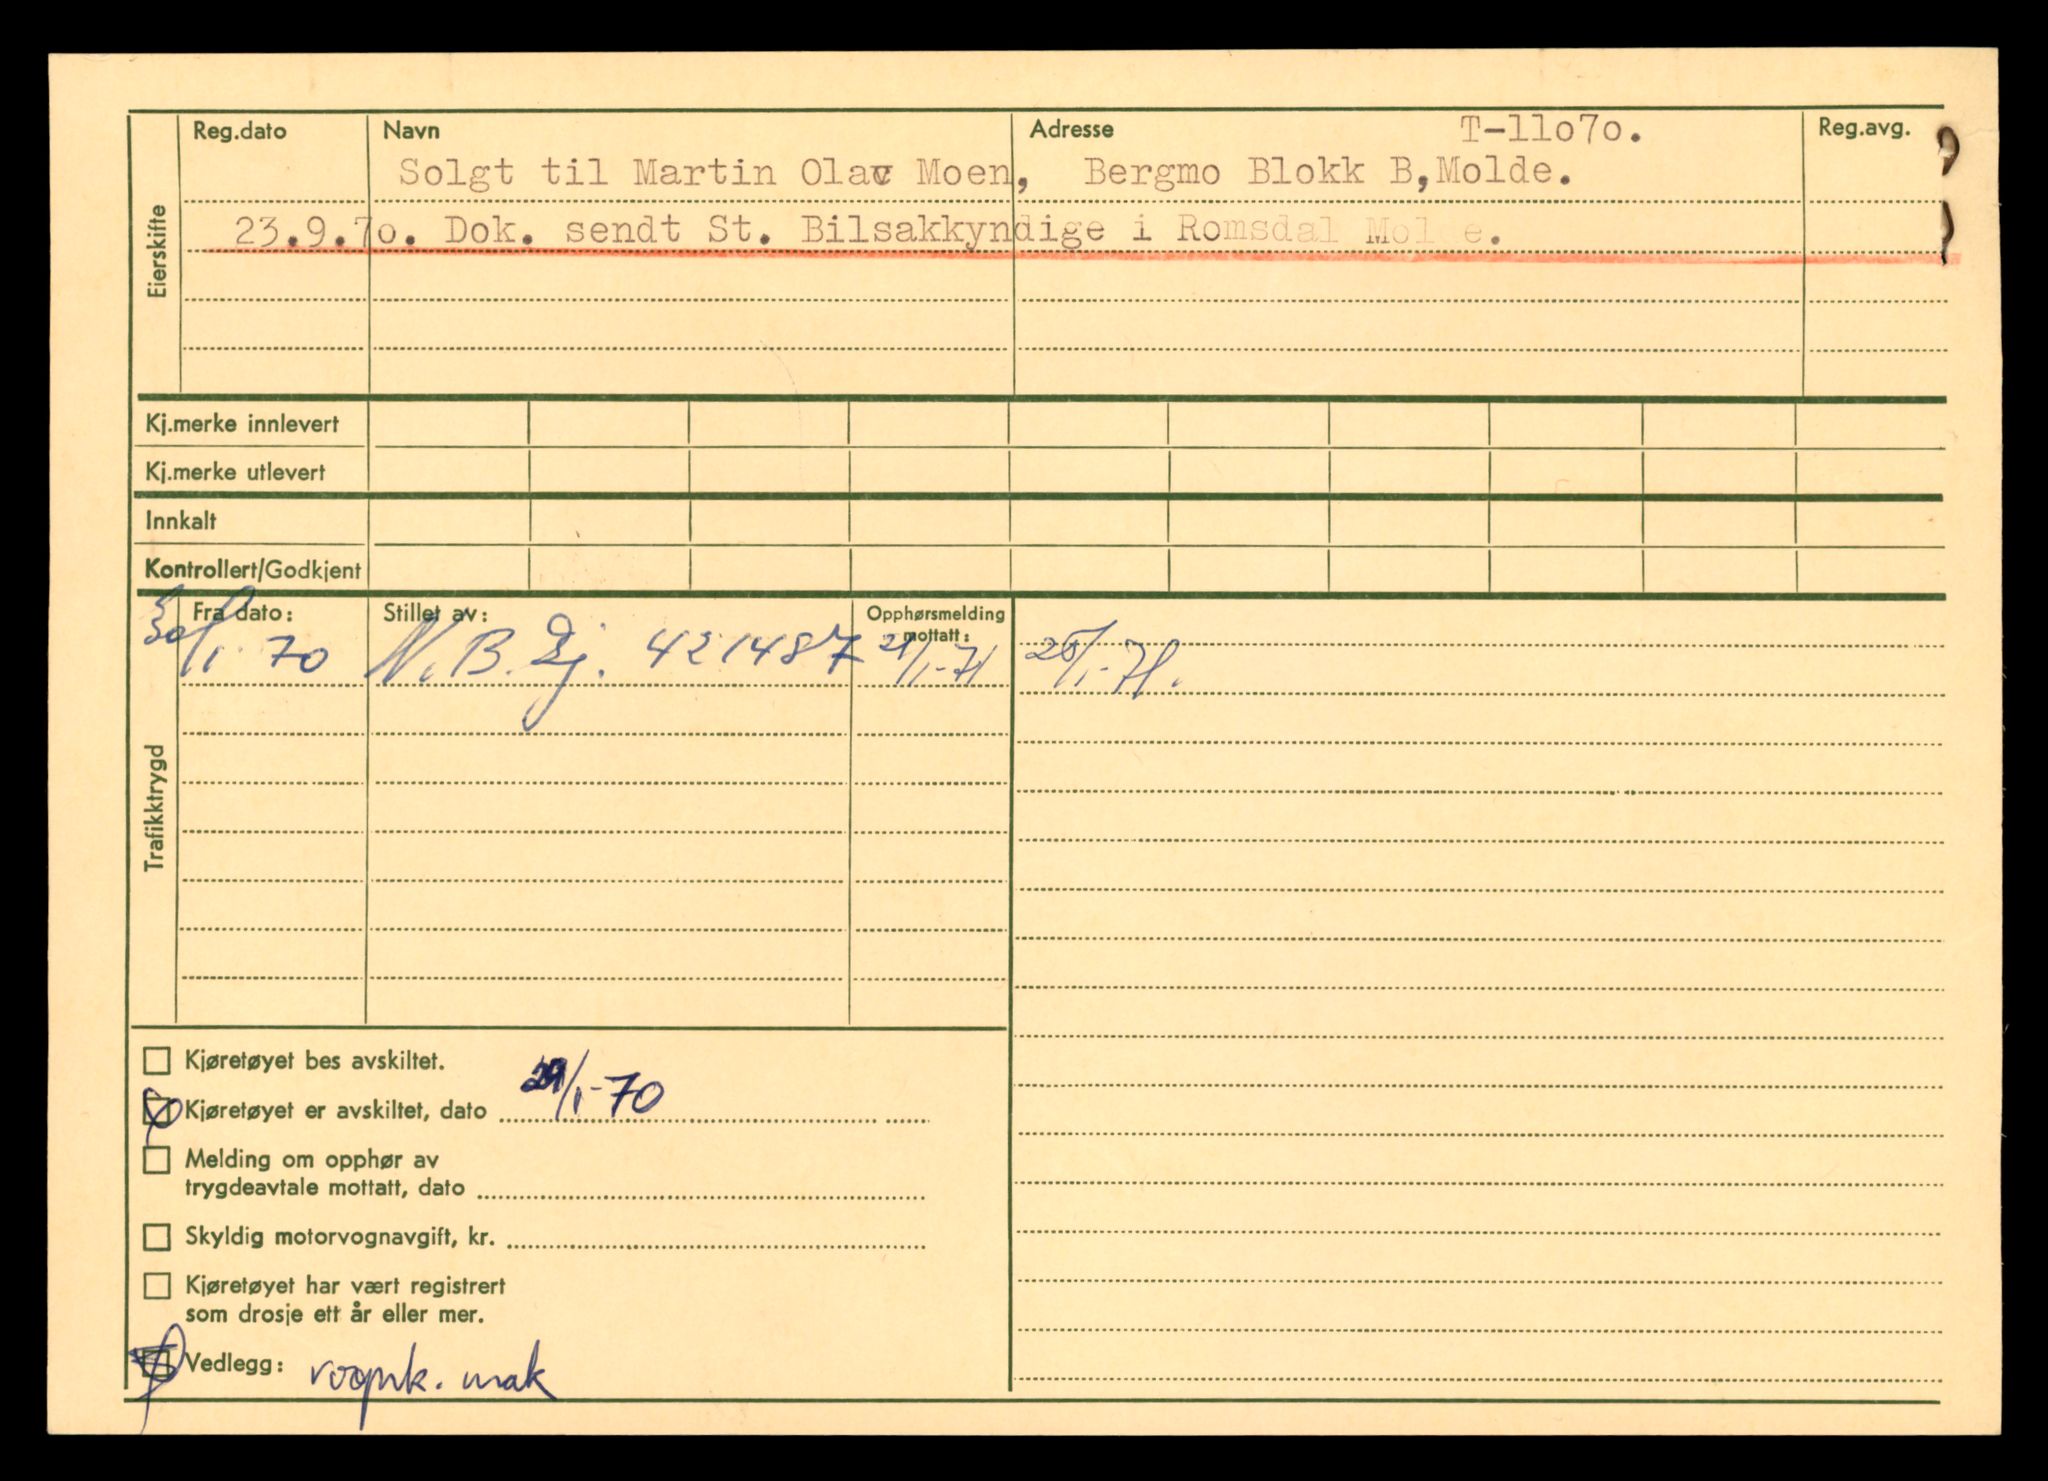 Eierskifte
Reg.dato Navn Adresse T-11o7o. Reg.avg.
Solgt til Martin Olav Moen, Bergmo Blokk B, Molde.
23.9.7o. Dok. sendt St. Bilsakkyndige i Romsdal Molde.
Kj.merke innlevert
Kj.merke utlevert
Innkalt
Kontrollert/Godkjent
Trafikktrygd
Fra dato: Stillet av: Opphørsmelding
mottatt:
30/1-70 N.B. 421487 21/1-71 25/1-71.
Kjøretøyet bes avskiltet.
Kjøretøyet er avskiltet, dato 29/1-70
Melding om opphør av
trygdeavtale mottatt, dato
Skyldig motorvognavgift, kr.
Kjøretøyet har vært registrert
som drosje ett år eller mer.
Vedlegg: vognk. mak